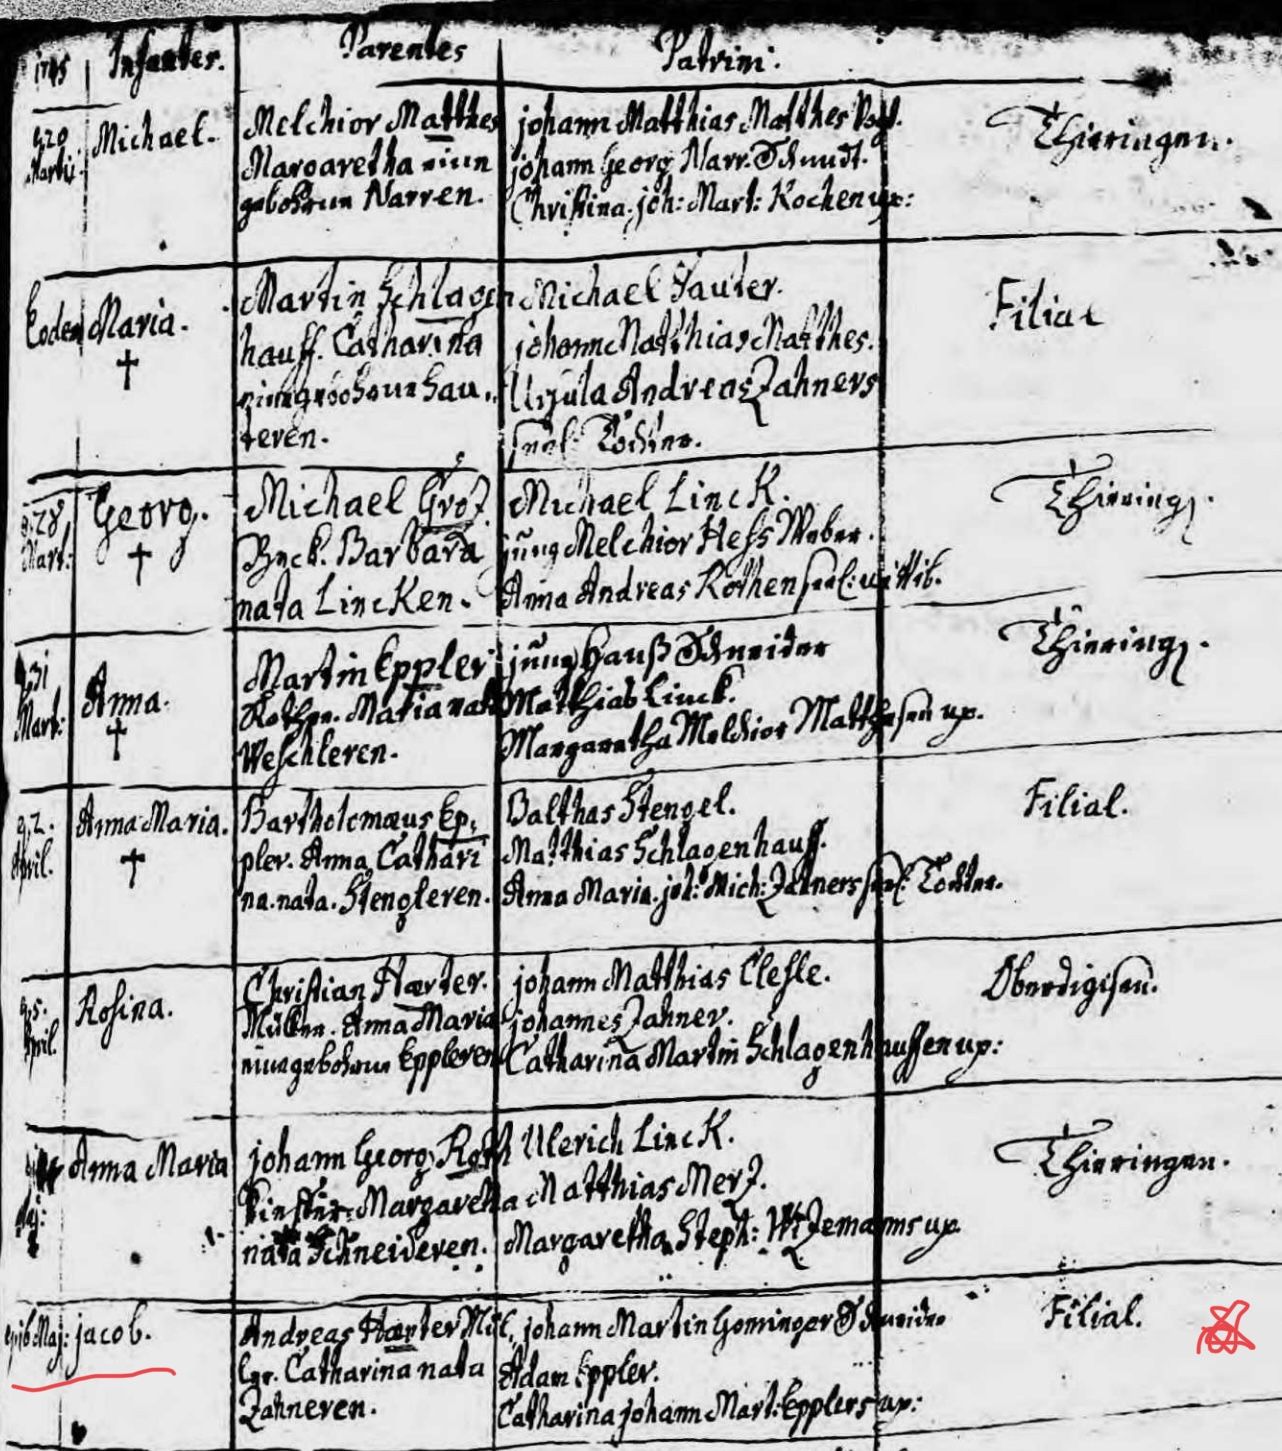 1745 Infantes. Parentes Patrini.
Michael. Melchior Matthes johann Matthias Matthes Vogt. Thieringen.
Martij. Margaretha eine johann Georg Narr. Schmidt.
gebohrene Narren. Christina. joh: Mart: Kochen ux:
Eodem Maria. Martin Schlagen Michael Sauter. Filial
hauff. Catharina johann Matthias Matthes.
eine gebohrne Sau- Ursula Andreas Zahners
teren. seel: Tochter.
d. 28 Georg. Michael Groz. Michael Linck. Thiering.
Mart: Beck. Barbara jung Melchior Hess Weber.
nata Lincken. Anna Andreas Rothen seel: wittib.
d. 31 Anna. Martin Eppler jung Hanß Schneider Thiering.
Mart: Maria nata Matthias Linck.
Weschleren. Margaretha Melchior Matthesen ux.
d. 2. Anna Maria. Bartholomæus Ep- Balthas Stengel. Filial.
April. pler. Anna Cathari Matthias Schlagenhauff.
na. nata. Stengleren. Anna Maria. joh: Mich: Zahners seel: Tochter.
d. 5. Rosina. Christian Hærter. johann Matthias Clesle. Oberdigisen.
April Müller. Anna Maria johannes Zahner.
eine gebohrne Eppleren Catharina Martin Schlagenhauffen ux:
Anna Maria johann Georg Roth Ulerich Linck. Thieringen.
Maj: Margaretha Matthias Merz.
nata Schneideren. Margaretha Steph: Wizemanns ux
d. 16 Maj: jacob. Andreas Hærter Mül- johann Martin Gominger Schneider Filial.
ler. Catharina nata Adam Eppler.
Zahneren. Catharina johann Mart: Epplers ux: